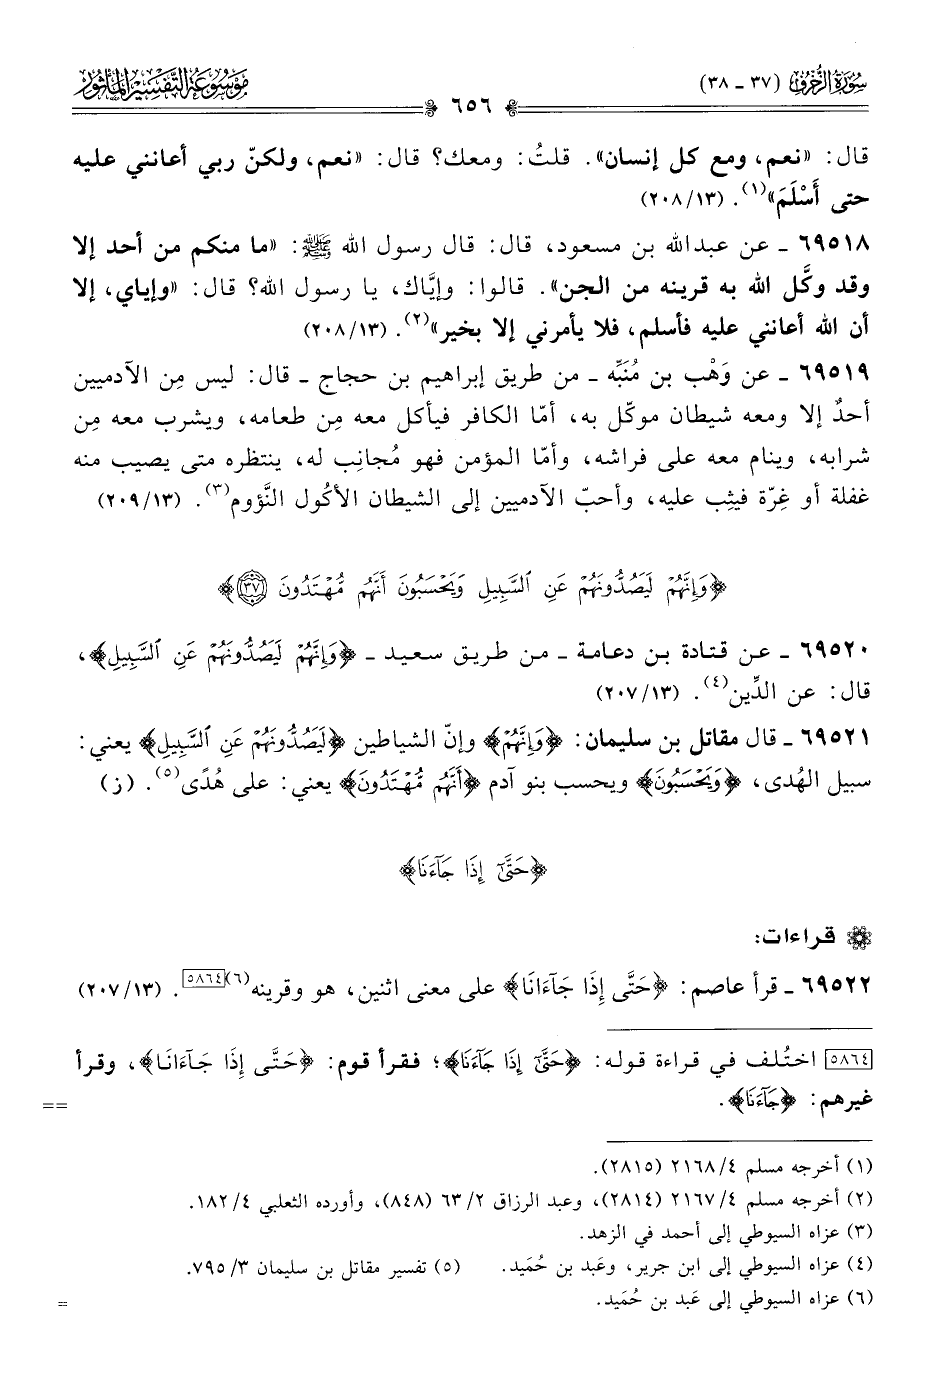 سُورَةُ الزُّخْرُفِ (٣٧ - ٣٨)
٦٥٦
مَوْسُوعَةُ التَّفْسِيرِ المَأْثُورِ
قال: «نعم، ومع كل إنسان». قلتُ: ومعك؟ قال: «نعم، ولكنّ ربي أعانني عليه
حتى أَسْلَمَ»(١). (٢٠٨/١٣)
٦٩٥١٨ - عن عبدالله بن مسعود، قال: قال رسول الله ﷺ: «ما منكم من أحد إلا
وقد وكَّل الله به قرينه من الجن». قالوا: وإيَّاك، يا رسول الله؟ قال: «وإياي، إلا
أن الله أعانني عليه فأسلم، فلا يأمرني إلا بخير»(٢). (٢٠٨/١٣)
٦٩٥١٩ - عن وَهْب بن مُنَبِّه - من طريق إبراهيم بن حجاج - قال: ليس مِن الآدميين
أحدٌ إلا ومعه شيطان موكّل به، أمّا الكافر فيأكل معه مِن طعامه، ويشرب معه مِن
شرابه، وينام معه على فراشه، وأمّا المؤمن فهو مُجانِب له، ينتظره متى يصيب منه
غفلة أو غِرّة فيثِب عليه، وأحبّ الآدميين إلى الشيطان الأكُول النَّؤوم(٣). (٢٠٩/١٣)
﴿وَإِنَّهُمْ لَيَصُدُّونَهُمْ عَنِ ٱلسَّبِيلِ وَيَحْسَبُونَ أَنَّهُم مُّهْتَدُونَ ٣٧﴾
٦٩٥٢٠ - عن قتادة بن دعامة - من طريق سعيد - ﴿وَإِنَّهُمْ لَيَصُدُّونَهُمْ عَنِ ٱلسَّبِيلِ﴾،
قال: عن الدِّين(٤). (٢٠٧/١٣)
٦٩٥٢١ - قال مقاتل بن سليمان: ﴿وَإِنَّهُمْ﴾ وإنّ الشياطين ﴿لَيَصُدُّونَهُمْ عَنِ ٱلسَّبِيلِ﴾ يعني:
سبيل الهُدى، ﴿وَيَحْسَبُونَ﴾ ويحسب بنو آدم ﴿أَنَّهُم مُّهْتَدُونَ﴾ يعني: على هُدًى(٥). (ز)
﴿حَتَّىٰٓ إِذَا جَآءَنَا﴾
قراءات:
٦٩٥٢٢ - قرأ عاصم: ﴿حَتَّى إِذَا جَآءَانَا﴾ على معنى اثنين، هو وقرينه(٦)[٥٨٦٤]. (٢٠٧/١٣)
[٥٨٦٤] اختُلف في قراءة قوله: ﴿حَتَّىٰٓ إِذَا جَآءَنَا﴾؛ فقرأ قوم: ﴿حَتَّى إِذَا جَآءَانَا﴾، وقرأ
غيرهم: ﴿جَآءَنَا﴾. ==
(١) أخرجه مسلم ٤/ ٢١٦٨ (٢٨١٥).
(٢) أخرجه مسلم ٤/ ٢١٦٧ (٢٨١٤)، وعبد الرزاق ٢/ ٦٣ (٨٤٨)، وأورده الثعلبي ٤/ ١٨٢.
(٣) عزاه السيوطي إلى أحمد في الزهد.
(٤) عزاه السيوطي إلى ابن جرير، وعَبد بن حُمَيد. (٥) تفسير مقاتل بن سليمان ٣/ ٧٩٥.
(٦) عزاه السيوطي إلى عَبد بن حُمَيد. =